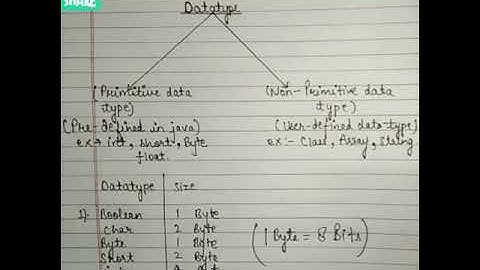 SHARE
Datatype
(Primitive data type)
(Pre-defined in java)
ex→ int, short, Byte
float.
(Non-Primitive data type)
(User-defined data-type)
ex:- Class, Array, String
Datatype Size
1) Boolean 1 Byte
Char 2 Byte
Byte 1 Byte
Short 2 Byte
(1 Byte = 8 Bits)